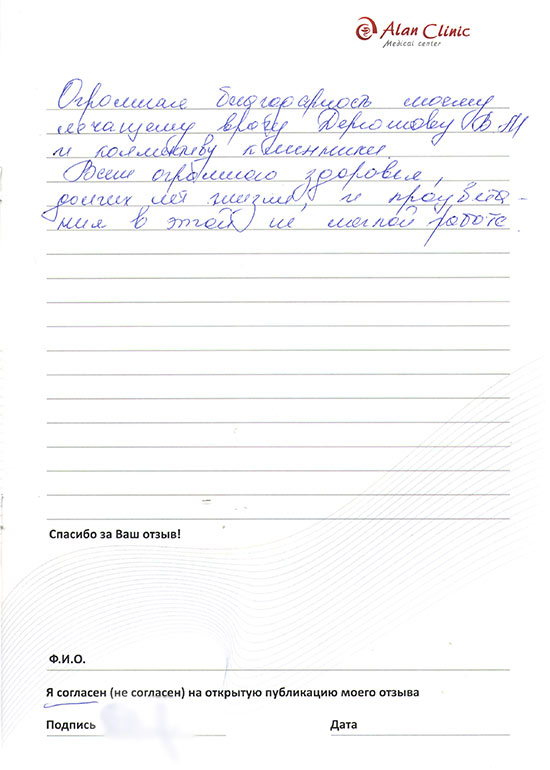 Alan Clinic
Medical center
Огромная благодарность моему
лечащему врачу В.М
и коллективу клиники.
Всем огромного здоровья,
долгих лет жизни, и процвета-
ния в этой не легкой работе
Спасибо за Ваш отзыв!
Ф.И.О.
Я согласен (не согласен) на открытую публикацию моего отзыва
Подпись
Дата